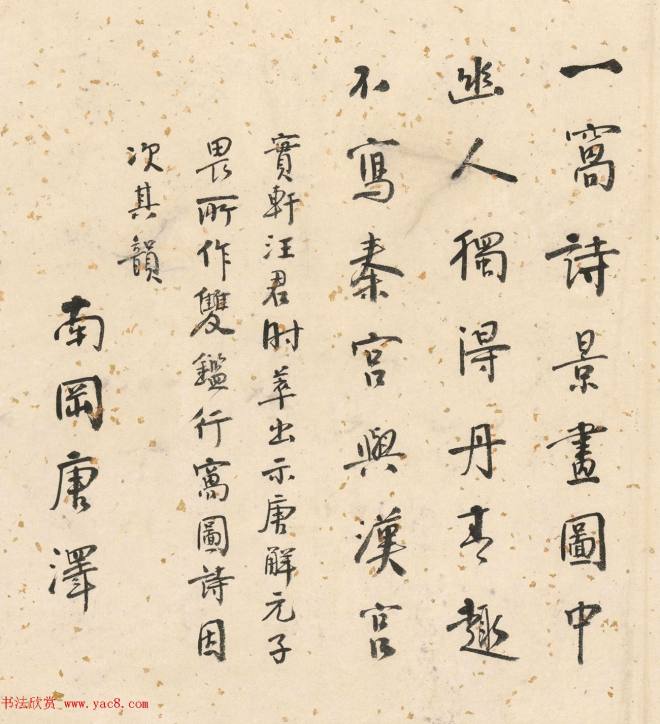 一窩詩景畫圖中
幽人獨得丹青趣
不寫秦宮與漢宮
實軒汪君時萃出示唐解元子
畏所作雙鑑行窩圖詩因
次其韻
南岡唐澤
书法欣赏_www.yac8.com